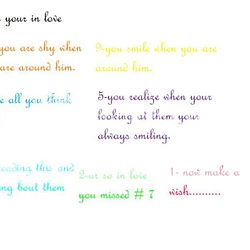 your in love
you are shy when
are around him.
9-you smile when you are
around him.
all you think
5-you realize when your
looking at them your
always smiling.
reading this and
bout them
2-ur so in love
you missed # 7
1- now make a
wish..........